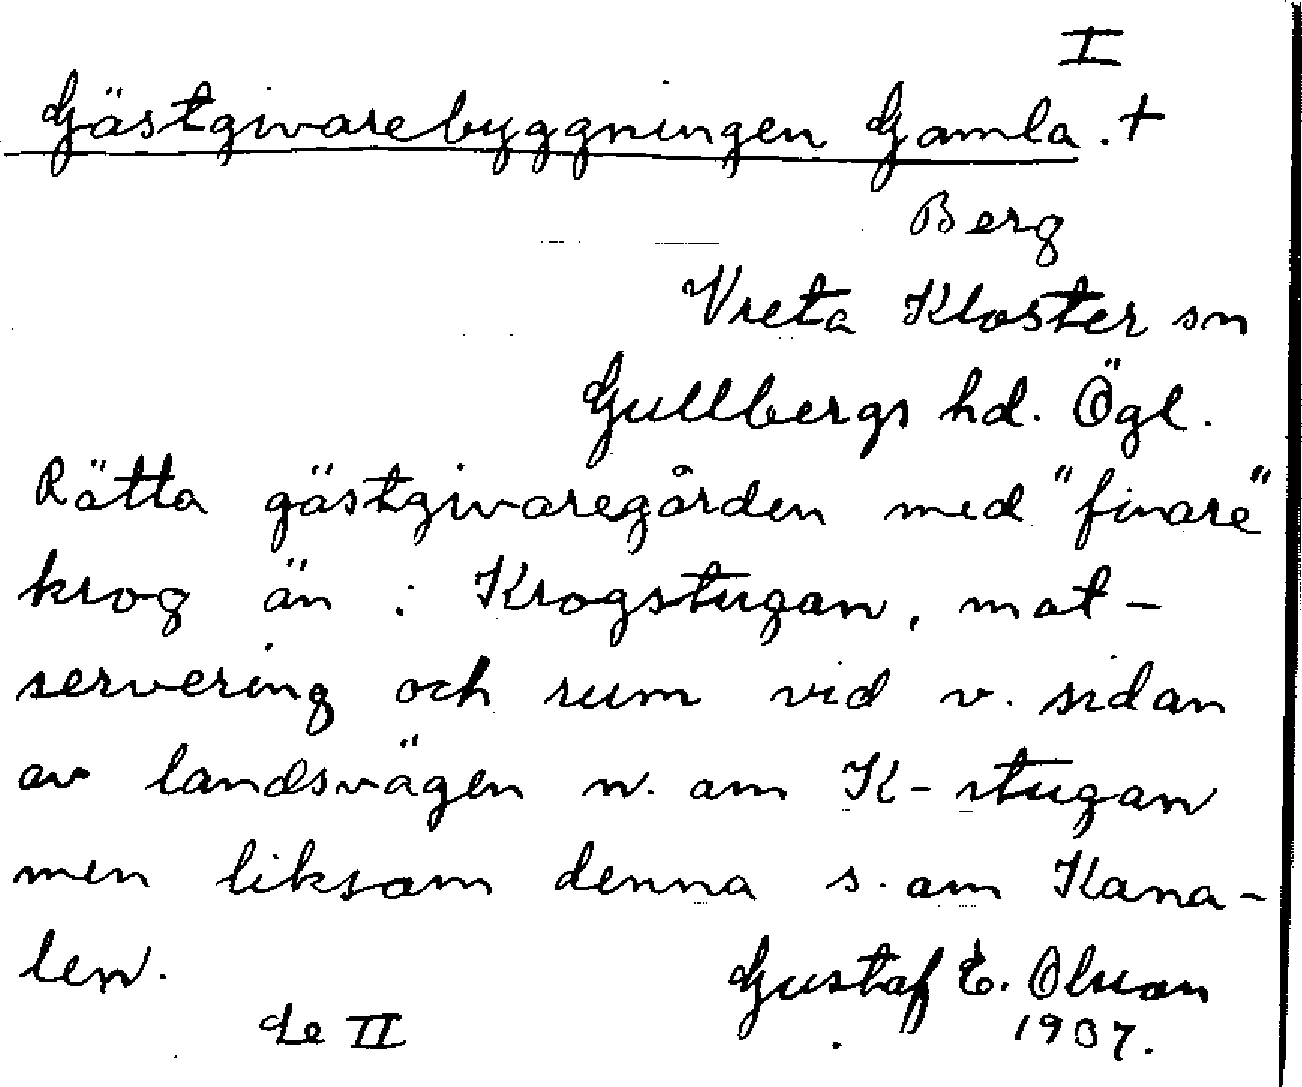 I
Gästgivarebyggningen Gamla. +
Berg
Vreta Kloster sn
Gullbergs hd. Ögl.
Rätta gästgivaregården med "finare"
krog än i Krogstugan, mat-
servering och rum vid v. sidan
av landsvägen n. om K-stugan
men liksom denna s. om Kana-
len.
Gustaf E. Olsson
de II
1907.